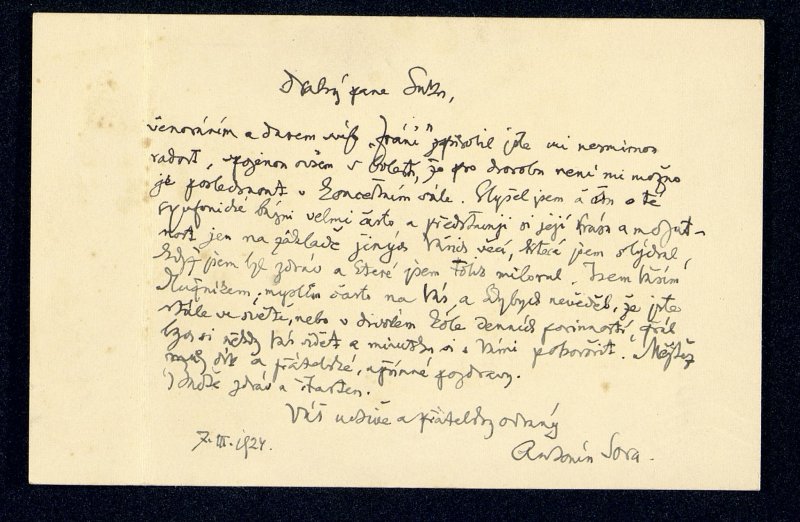 Drahý pane Suku,
věnováním a darem svého „Zrání" způsobil jste mi nesmírnou
radost, spojenou ovšem s bolestí, že pro chorobu není mi možno
je poslechnout v koncertním sále. Slyšel jsem a čtu o té
symfonické básni velmi často a představuji si její krásu a mohut-
nost jen na základě jiných Vašich věcí, která jsem slýchal,
když jsem byl zdráv a které jsem tolik miloval. Jsem Vaším
dlužníkem, myslím často na Vás a kdybych nevěděl, že jste
stále ve světě, nebo v divokém kole denních povinností, přál
bych si někdy Vás vidět a minutku si s Vámi pohovořit. Mějtež
můj dík a přátelské, upřímné pozdravy.
Buďte zdráv a šťasten.
Váš uctivě a přátelsky oddaný
7. III. 1924.
Antonín Sova.